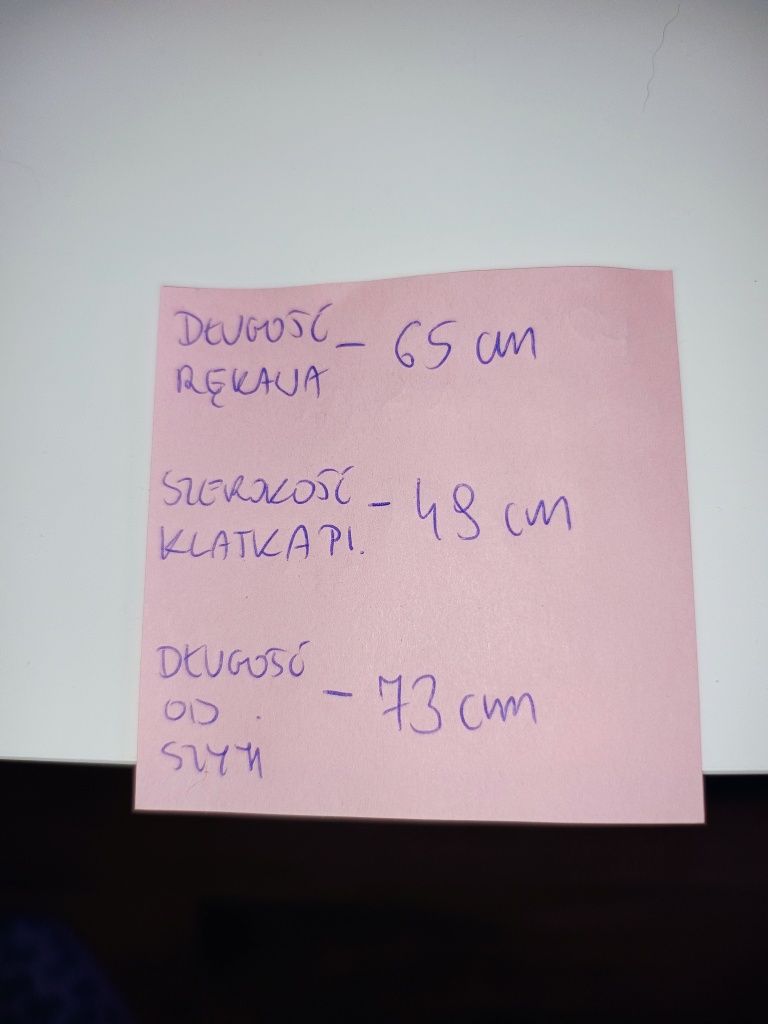 DŁUGOŚĆ
RĘKAWA – 65 cm
SZEROKOŚĆ
KLATKA PI. – 49 cm
DŁUGOŚĆ
OD – 73 cm
SZYI